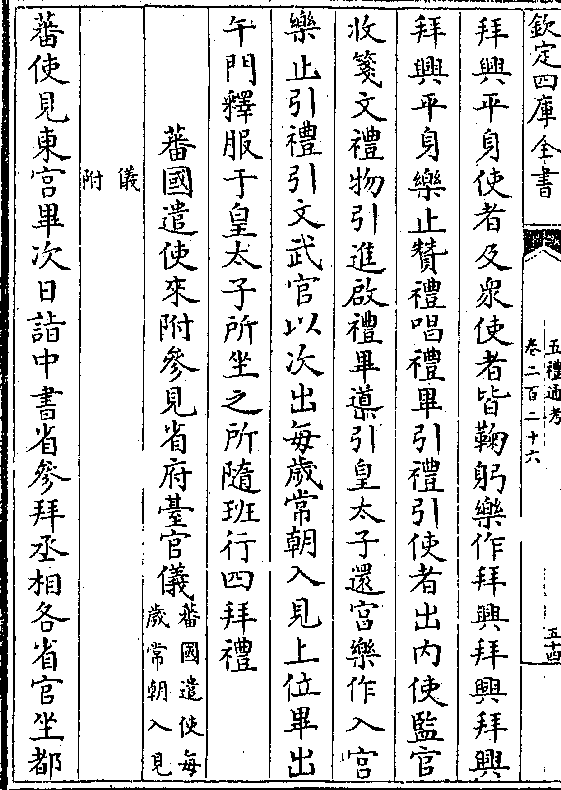 欽定四庫全書
五禮通考
卷二百二十六
五十四
拜興平身使者及衆使者皆鞠躬樂作拜興拜興拜興
拜興平身樂止贊禮唱禮畢引禮引使者出内使監官
收箋文禮物引進啟禮畢導引皇太子還宮樂作入宮
樂止引禮引文武官以次出每歳常朝入見上位畢出
午門釋服于皇太子所坐之所隨班行四拜禮
蕃國遣使來附參見省府臺官儀蕃國遣使每
歳常朝入見
儀
附
蕃使見東宮畢次日詣中書省參拜丞相各省官坐都